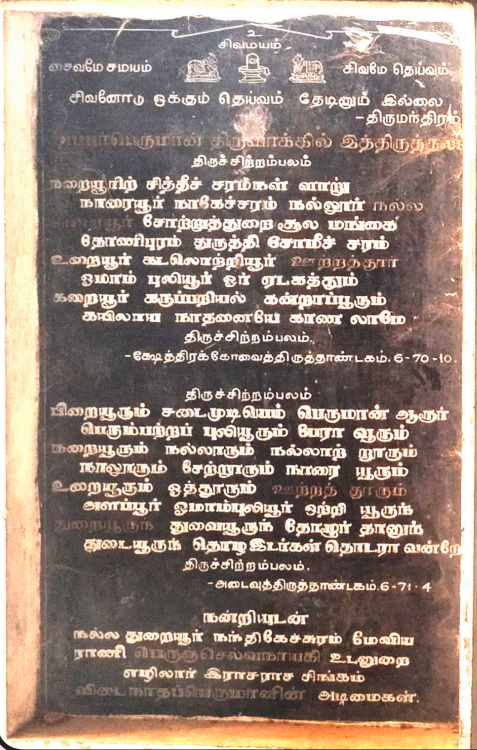 உ
சிவமயம்
சைவமே சமயம் சிவமே தெய்வம்.
சிவனோடு ஒக்கும் தெய்வம் தேடினும் இல்லை
-திருமந்திரம்
திருவாக்கில்
திருச்சிற்றம்பலம்
நறையூரிற் சித்தீச் சரம்நள் ளாறு
நாரையூர் நாகேச்சரம் நல்லூர் நல்ல
சோற்றுத்துறை சூல மங்கை
தோணிபுரம் துருத்தி சோமீச் சரம்
உறையூர் கடலொற்றியூர் ஊற்றத்தூர்
ஓமாம் புலியூர் ஓர் ஏடகத்தும்
கறையூர் கருப்பறியல் கன்றாப்பூரும்
கயிலாய நாதனையே காண லாமே
திருச்சிற்றம்பலம்.
-க்ஷேத்திரக்கோவைத்திருத்தாண்டகம். 6-70-10.
திருச்சிற்றம்பலம்
பிறையூரும் சடைமுடியெம் பெருமான் ஆரூர்
பெரும்பற்றப் புலியூரும் பேரா வூரும்
நறையூரும் நல்லாரும் நல்லாற் றூரும்
நாலூரும் சேற்றூரும் நாரை யூரும்
உறையூரும் ஓத்தூரும் ஊற்றத் தூரும்
அளப்பூர் ஓமாம்புலியூர் ஒற்றி யூருந்
துறையூருந் துவையூருந் தோழூர் தானுந்
துடையூருந் தொழ இடர்கள் தொடரா வன்றே
திருச்சிற்றம்பலம்.
-அடைவுத்திருத்தாண்டகம். 6-71-4
நன்றியுடன்
நல்ல துறையூர் நந்திகேச்சுரம் மேவிய
ராணி பெருஞ்செல்வநாயகி உடனுறை
எழிலார் இராசராச சிங்கம்
விடைநாதப்பெருமானின் அடிமைகள்.